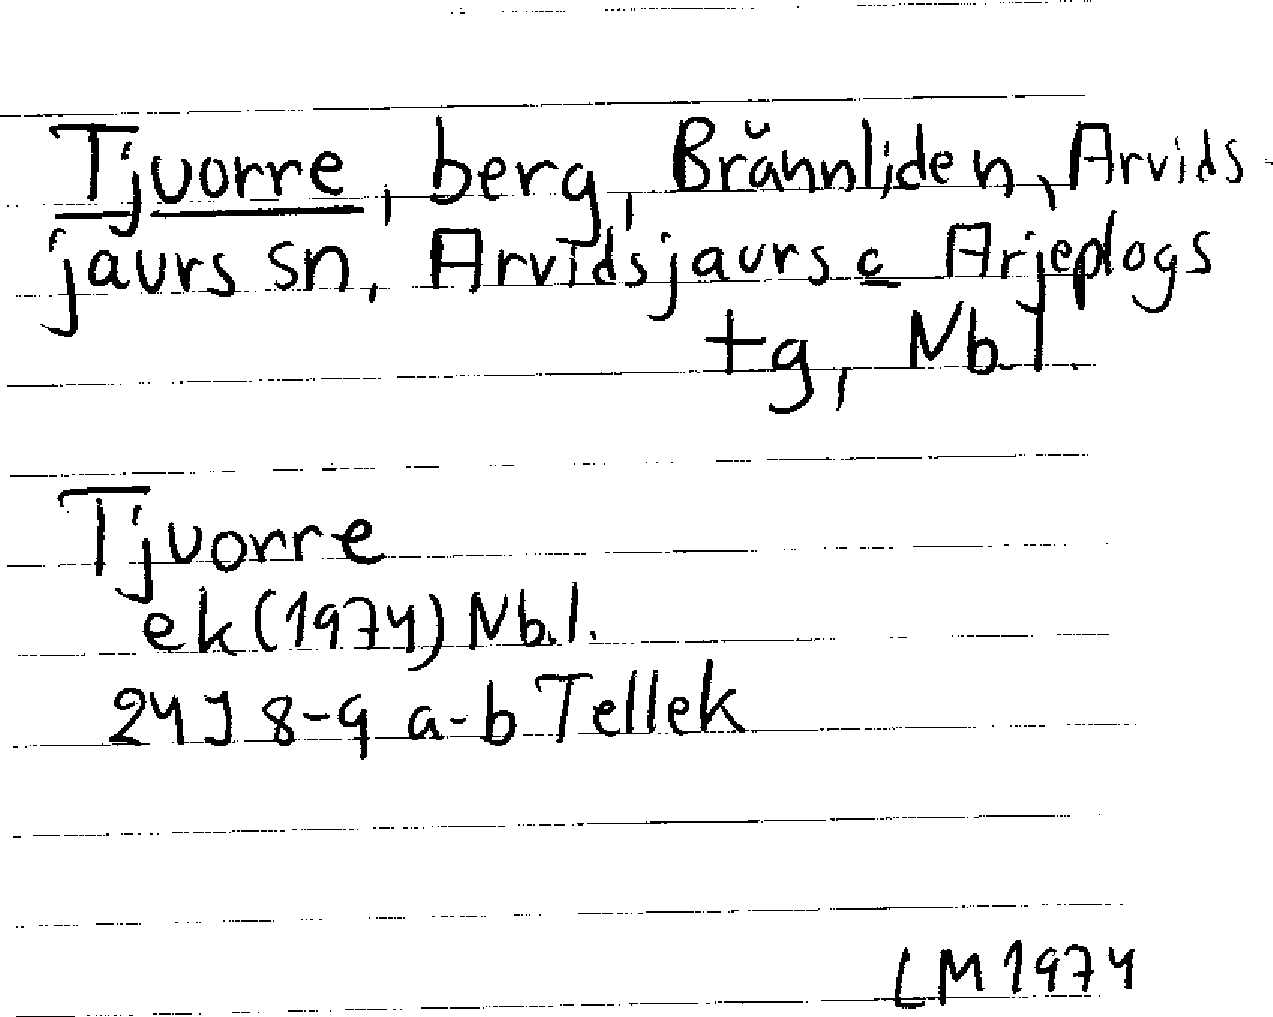 Tjvorre, berg, Brännliden, Arvids-
jaurs sn, Arvidsjaurs o Arjeplogs
tg, Nb.l.
Tjvorre
ek (1974) Nb.l.
24J 8-9 a-b Tellek
LM 1974